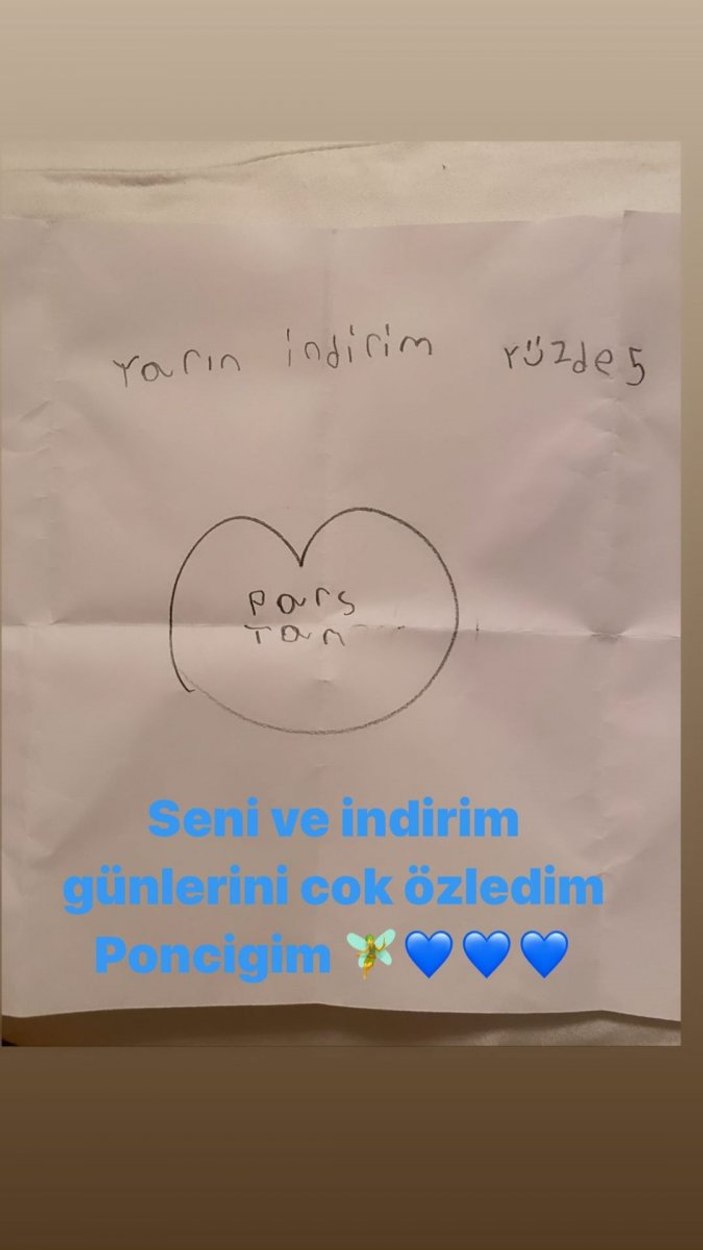 Yarın indirim Yüzde 5
Pars
Tan
Seni ve indirim
günlerini cok özledim
Poncigim 🧚💙💙💙